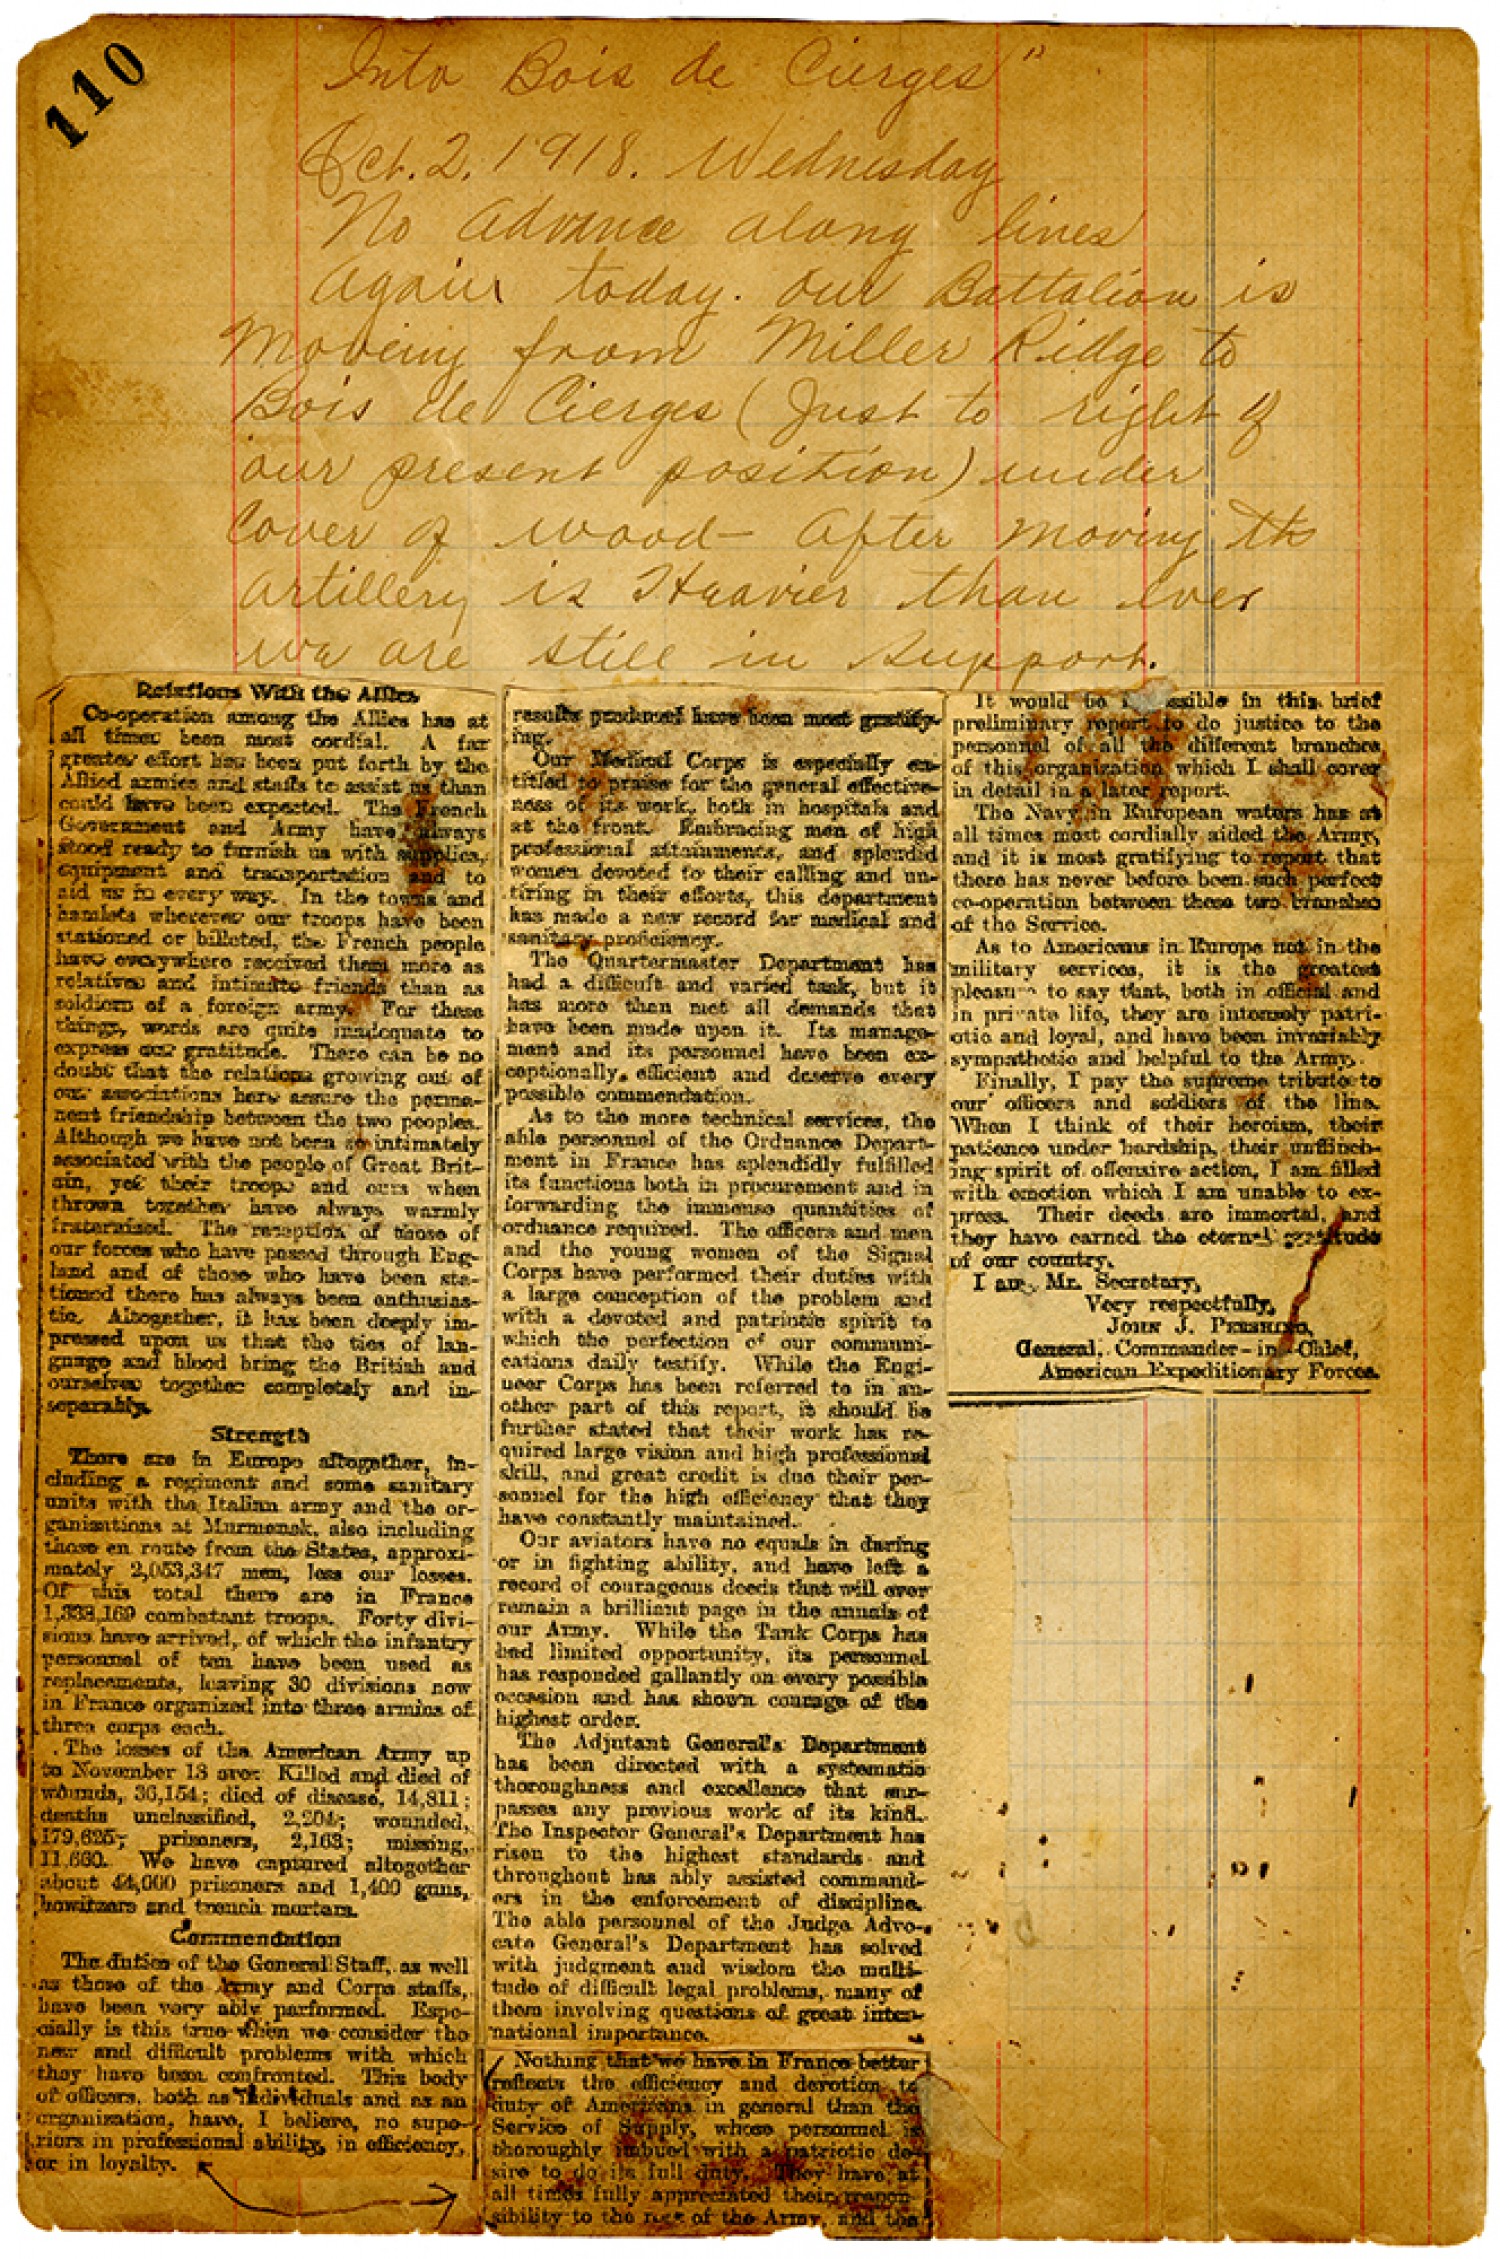 110
Into Bois de Cierges"
Oct. 2, 1918. Wednesday
No advance along lines
again today. our Battalion is
moveing from Miller Ridge to
Bois de Cierges (Just to right of
our present position) under
Cover of wood - After moving th
artillery is Heavier than ever
we are still in support.
Relations With the Allies
Co-operation among the Allies has at
all times been most cordial. A far
greater effort has been put forth by the
Allied armies and staffs to assist us than
could have been expected. The French
Government and Army have always
stood ready to furnish us with supplies,
equipment and transportation and to
aid us in every way. In the towns and
hamlets wherever our troops have been
stationed or billeted, the French people
have everywhere received them more as
relatives and intimate friends than as
soldiers of a foreign army. For these
things, words are quite inadequate to
express our gratitude. There can be no
doubt that the relations growing out of
our associations here assure the perma-
nent friendship between the two peoples.
Although we have not been so intimately
associated with the people of Great Brit-
ain, yet their troops and ours when
thrown together have always warmly
fraternized. The reception of those of
our forces who have passed through Eng-
land and of those who have been sta-
tioned there has always been enthusias-
tic. Altogether, it has been deeply im-
pressed upon us that the ties of lan-
guage and blood bring the British and
ourselves together completely and in-
separably.
Strength
There are in Europe altogether, in-
cluding a regiment and some sanitary
units with the Italian army and the or-
ganizations at Murmansk, also including
those en route from the States, approxi-
mately 2,053,347 men, less our losses.
Of this total there are in France
1,338,169 combatant troops. Forty divi-
sions have arrived, of which the infantry
personnel of ten have been used as
replacements, leaving 30 divisions now
in France organized into three armies of
three corps each.
The losses of the American Army up
to November 18 are: Killed and died of
wounds, 36,154; died of disease, 14,811;
deaths unclassified, 2,204; wounded,
179,625; prisoners, 2,163; missing,
11,660. We have captured altogether
about 44,000 prisoners and 1,400 guns,
howitzers and trench mortars.
Commendation
The duties of the General Staff, as well
as those of the Army and Corps staffs,
have been very ably performed. Espe-
cially is this true when we consider the
new and difficult problems with which
they have been confronted. This body
of officers, both as individuals and as an
organization, have, I believe, no supe-
riors in professional ability, in efficiency,
or in loyalty.
Nothing that we have in France better
reflects the efficiency and devotion to
duty of Americans in general than the
Service of Supply, whose personnel is
thoroughly imbued with a patriotic de-
sire to do its full duty. They have at
all times fully appreciated their respon-
sibility to the rest of the Army, and the
results produced have been most gratify-
ing.
Our Medical Corps is especially en-
titled to praise for the general effective-
ness of its work, both in hospitals and
at the front. Embracing men of high
professional attainments, and splendid
women devoted to their calling and un-
tiring in their efforts, this department
has made a new record for medical and
sanitary proficiency.
The Quartermaster Department has
had a difficult and varied task, but it
has more than met all demands that
have been made upon it. Its manage-
ment and its personnel have been ex-
ceptionally efficient and deserve every
possible commendation.
As to the more technical services, the
able personnel of the Ordnance Depart-
ment in France has splendidly fulfilled
its functions both in procurement and in
forwarding the immense quantities of
ordnance required. The officers and men
and the young women of the Signal
Corps have performed their duties with
a large conception of the problem and
with a devoted and patriotic spirit to
which the perfection of our communi-
cations daily testify. While the Engi-
neer Corps has been referred to in an-
other part of this report, it should be
further stated that their work has re-
quired large vision and high professional
skill, and great credit is due their per-
sonnel for the high efficiency that they
have constantly maintained.
Our aviators have no equals in daring
or in fighting ability, and have left a
record of courageous deeds that will ever
remain a brilliant page in the annals of
our Army. While the Tank Corps has
had limited opportunity, its personnel
has responded gallantly on every possible
occasion and has shown courage of the
highest order.
The Adjutant General's Department
has been directed with a systematic
thoroughness and excellence that sur-
passes any previous work of its kind.
The Inspector General's Department has
risen to the highest standards and
throughout has ably assisted command-
ers in the enforcement of discipline.
The able personnel of the Judge Advo-
cate General's Department has solved
with judgment and wisdom the multi-
tude of difficult legal problems, many of
them involving questions of great inter-
national importance.
It would be in this brief
preliminary report to do justice to the
personnel of all the different branches
of this organization which I shall cover
in detail in a later report.
The Navy in European waters has at
all times most cordially aided the Army,
and it is most gratifying to report that
there has never before been such perfect
co-operation between these two branches
of the Service.
As to Americans in Europe not in the
military services, it is the greatest
pleasure to say that, both in official and
in private life, they are intensely patri-
otic and loyal, and have been invariably
sympathetic and helpful to the Army.
Finally, I pay the supreme tribute to
our officers and soldiers of the line.
When I think of their heroism, their
patience under hardship, their unflinch-
ing spirit of offensive action, I am filled
with emotion which I am unable to ex-
press. Their deeds are immortal, and
they have earned the eternal gratitude
of our country.
I am, Mr. Secretary,
Very respectfully,
JOHN J. PERSHING,
General, Commander-in-Chief,
American Expeditionary Forces.